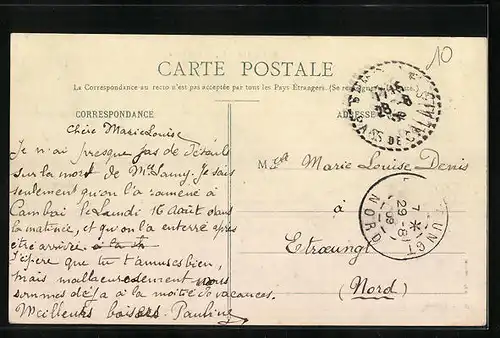 10
CARTE POSTALE
La Correspondance au recto n'est pas acceptée par tous les Pays Étrangers. (Se renseigner à la Poste.)
CORRESPONDANCE
ADRESSE
Chère Marie Louise
Je n'ai presque pas de détails
sur la mort de Mr Lamy. Je sais
seulement qu'on l'a ramené à
Cambrai le Lundi 16 Août dans
la matinée, et qu'on l'a enterré après
être arrivée à la
J'espère que tu t'amuses bien,
mais malheureusement nous
sommes déjà à la moitié de vacances.
Meilleurs baisers. Pauline
Melle Marie Louise Denis
à
Etroeungt
(Nord)
17 15
28 -8
PAS DE CALAIS
7 *
29 -8
09
NORD